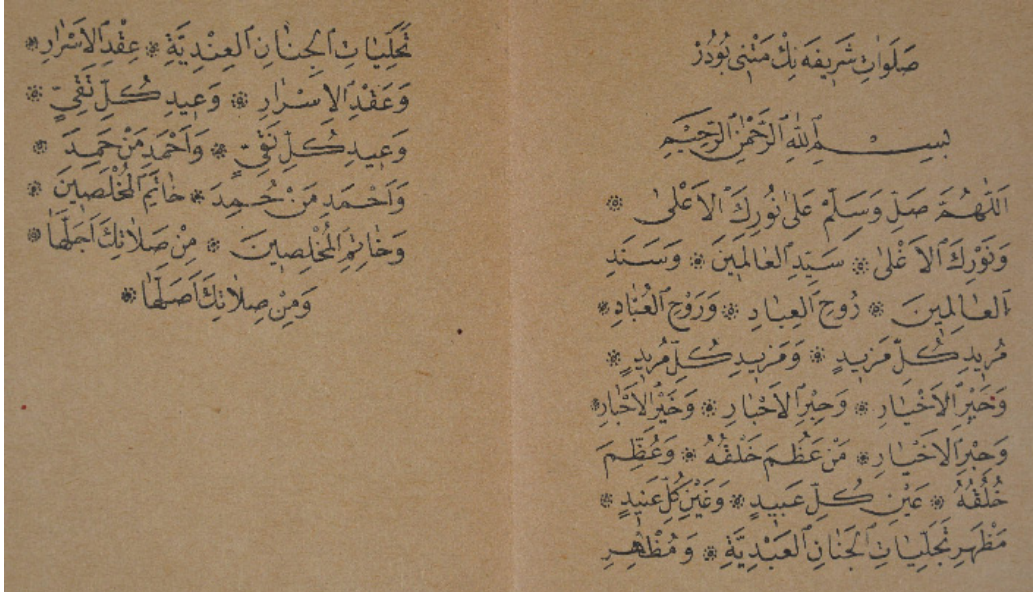 صَلَوَاتِ شَرِيفَه نِكْ مَتْنِى بُودُرْ
بِسْــــمِ اللّٰهِ الرَّحْمٰنِ الرَّحِيمِ
اَللّٰهُمَّ صَلِّ وَسَلِّمْ عَلٰى نُورِكَ الْاَعْلٰى ۞
وَنَوْرِكَ الْاَغْلٰى ۞ سَيِّدِ الْعَالَمِينَ ۞ وَسَنَدِ
الْعَالِمِينَ ۞ رُوحِ الْعِبَادِ ۞ وَرَوْحِ الْعُبَّادِ ۞
مُرِيدِ كُلِّ مَزِيدٍ ۞ وَمَزِيدِ كُلِّ مُرِيدٍ ۞
وَخَيْرِ الْاَخْيَارِ ۞ وَحِبْرِ الْاَحْبَارِ ۞ وَخَيْرِ الْاَحْبَارِ ۞
وَحِبْرِ الْاَخْيَارِ ۞ مَنْ عَظُمَ خَلْقُهُ ۞ وَعُظِّمَ
خُلُقُهُ ۞ عَيْنِ كُلِّ عَبِيدٍ ۞ وَغَيْنِ كُلِّ عَنِيدٍ ۞
مَظْهَرِ تَجَلِّيَاتِ الْجَنَانِ الْعَبْدِيَّةِ ۞ وَمُظْهِرِ
تَجَلِّيَاتِ الْجِنَانِ الْعِنْدِيَّةِ ۞ عِقْدِ الْاَسْرَارِ ۞
وَعَقْدِ الْاِسْرَارِ ۞ وَعِيدِ كُلِّ تَقِيٍّ ۞
وَعِيدِ كُلِّ نَقِيٍّ ۞ وَاَحْمَدِ مَنْ حَمِدَ ۞
وَاَحْمَدِ مَنْ حُمِدَ ۞ خَاتَمِ الْمُخْلَصِينَ ۞
وَخَاتِمِ الْمُخْلِصِينَ ۞ مِنْ صَلَاتِكَ اَجَلَّهَا ۞
وَمِنْ صِلَاتِكَ اَصَلَّهَا ۞